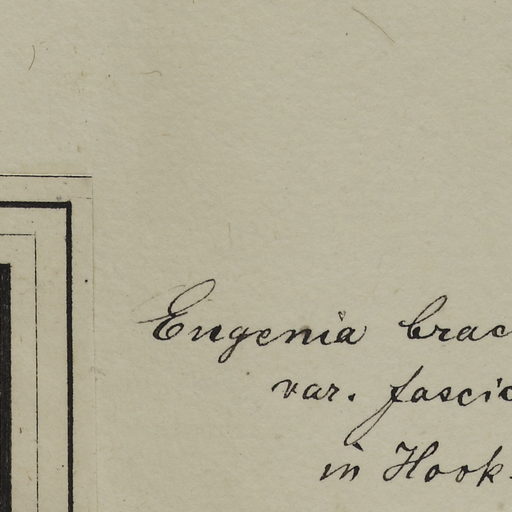 Eugenia brac
var. fascic
in Hook.